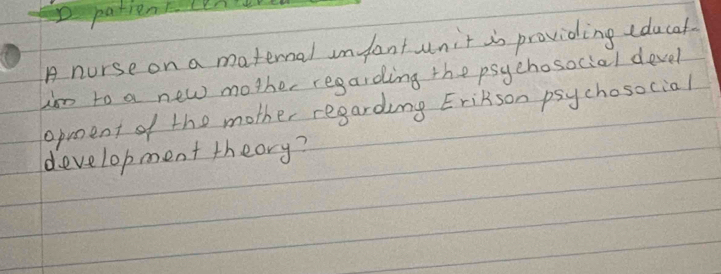 D patient.
A nurse on a maternal infant unit is providing educat-
ion to a new mother regarding the psychosocial devel
opment of the mother regarding Erikson psychosocial
development theory?